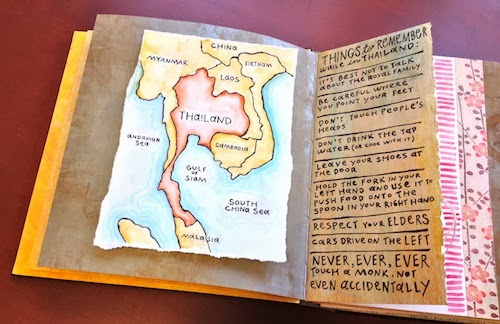 CHINA
MYANMAR
VIETNAM
LAOS
THAILAND
ANDAMAN
SEA
CAMBODIA
GULF
OF
SIAM
SOUTH
CHINA SEA
MALASIA
THINGS to REMEMBER
WHILE in THAILAND:
IT'S BEST NOT TO TALK
ABOUT THE ROYAL FAMILY
BE CAREFUL WHERE
YOU POINT YOUR FEET
DON'T TOUCH PEOPLE'S
HEADS
DON'T DRINK THE TAP
WATER (OR COOK WITH IT)
LEAVE YOUR SHOES AT
THE DOOR
HOLD THE FORK IN YOUR
LEFT HAND AND USE IT TO
PUSH FOOD ONTO THE
SPOON IN YOUR RIGHT HAND
RESPECT YOUR ELDERS
CARS DRIVE ON THE LEFT
NEVER, EVER, EVER
TOUCH A MONK. NOT
EVEN ACCIDENTALLY